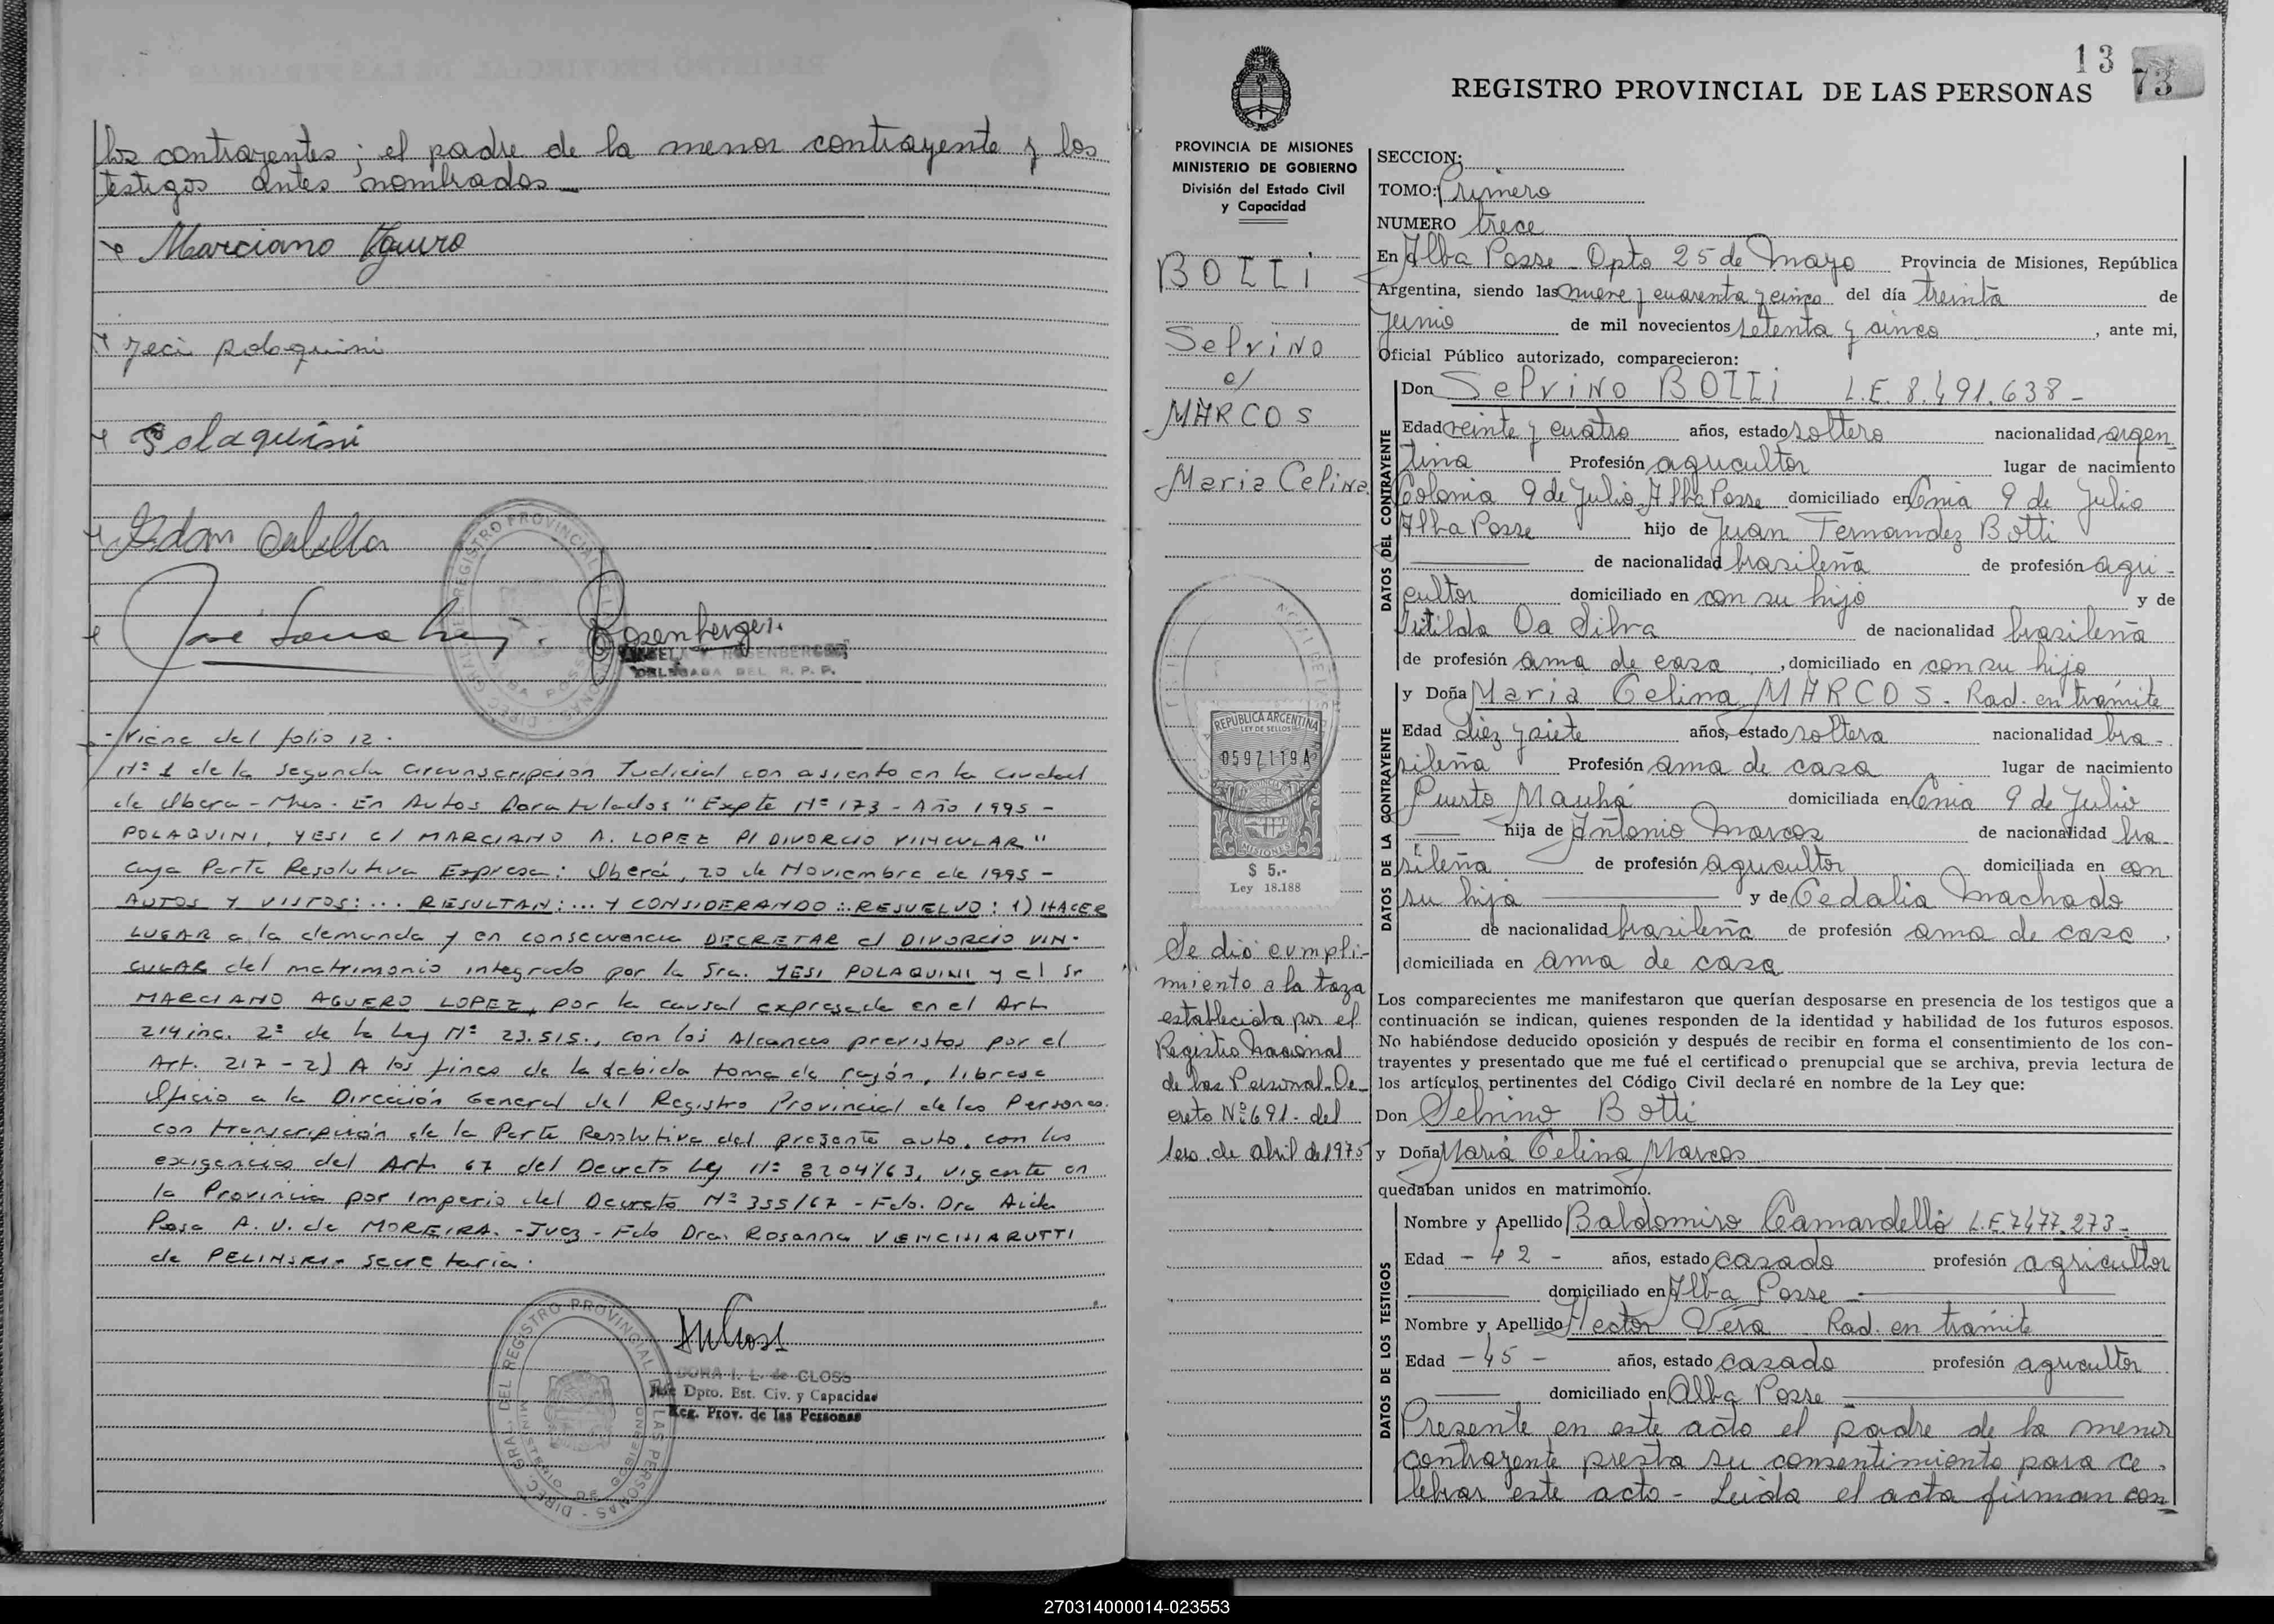 los contrayentes; el padre de la menor contrayente y los
testigos antes nombrados
Marciano Aguero
Yeci polaquini
Polaquini
José
Rosenberger
ANGELA ROSENBERGER
DELEGADA DEL R. P. P.
-Viene del folio 12.
Nº 1 de la Segunda Circunscripción Judicial con asiento en la Ciudad
de Obera - Mnes. En Autos Caratulados "Expte Nº 173 - Año 1995 -
POLAQUINI, YESI C/ MARCIANO A. LOPEZ P/ DIVORCIO VINCULAR"
cuya Parte Resolutiva Expresa: Oberá, 20 de Noviembre de 1995 -
AUTOS Y VISTOS:... RESULTAN:... Y CONSIDERANDO:.. RESUELVO: 1) HACER
LUGAR a la demanda y en consecuencia DECRETAR el DIVORCIO VIN-
CULAR del matrimonio integrado por la Sra. YESI POLAQUINI y el Sr
MARCIANO AGUERO LOPEZ, por la causal expresada en el Art
214 inc. 2º de la Ley Nº 23.515., con los Alcances previstos por el
Art. 217 - 2) A los fines de la debida toma de razón, librese
Oficio a la Dirección General del Registro Provincial de las Personas.
con transcripción de la Parte Resolutiva del presente auto, con las
exigencias del Art 67 del Decreto Ley Nº 8204/63, vigente en
la Provincia por Imperio del Decreto Nº 355/67 - Fdo. Dra Aida
Rosa A. V. de MOREIRA. - Juez - Fdo Dra. Rosanna VENCHIARUTTI
de PELINSKI - Secretaria.
DORA I. L. de CLOSS
Jefe Dpto. Est. Civ. y Capacidad
Reg. Prov. de las Personas
13
73
REGISTRO PROVINCIAL DE LAS PERSONAS
PROVINCIA DE MISIONES
MINISTERIO DE GOBIERNO
División del Estado Civil
y Capacidad
BOTTI
Selvino
c/
MARCOS
Maria Celina
REPUBLICA ARGENTINA
LEY DE SELLOS
0597119A
MISIONES
$ 5.-
Ley 18.188
Se dió cumpli-
miento a la taza
establecida por el
Registro Nacional
de las Personal-De-
creto Nº 691- del
1ero. de abril de 1975
SECCION:
TOMO: Primero
NUMERO trece
En Alba Posse - Dpto 25 de Mayo Provincia de Misiones, República
Argentina, siendo las nueve y cuarenta y cinco del día treinta de
Junio de mil novecientos setenta y cinco, ante mi,
Oficial Público autorizado, comparecieron:
DATOS DEL CONTRAYENTE
Don Selvino BOTTI L.E. 8.491.638-
Edad veinte y cuatro años, estado soltero nacionalidad argen-
tina Profesión agricultor lugar de nacimiento
Colonia 9 de Julio Alba Posse domiciliado en Cnia 9 de Julio
Alba Posse hijo de Juan Fernandez Botti
de nacionalidad brasileña de profesión agri-
cultor domiciliado en con su hijo y de
Da Silva de nacionalidad brasileña
de profesión ama de casa, domiciliado en con su hijo
DATOS DE LA CONTRAYENTE
y Doña Maria Celina MARCOS. Rad. en trámite
Edad diez y siete años, estado soltera nacionalidad bra-
sileña Profesión ama de casa lugar de nacimiento
Puerto Mauhá domiciliada en Cnia 9 de Julio
hija de Antonio Marcos de nacionalidad bra-
sileña de profesión agricultor domiciliada en con
su hija y de Cedalia Machado
de nacionalidad brasileña de profesión ama de casa,
domiciliada en ama de casa
Los comparecientes me manifestaron que querían desposarse en presencia de los testigos que a
continuación se indican, quienes responden de la identidad y habilidad de los futuros esposos.
No habiéndose deducido oposición y después de recibir en forma el consentimiento de los con-
trayentes y presentado que me fué el certificado prenupcial que se archiva, previa lectura de
los artículos pertinentes del Código Civil declaré en nombre de la Ley que:
Don Selvino Botti
y Doña Maria Celina Marcos
quedaban unidos en matrimonio.
DATOS DE LOS TESTIGOS
Nombre y Apellido Baldomiro Camardelló L.E. 7.477.273-
Edad - 42 - años, estado casado profesión agricultor
domiciliado en Alba Posse
Nombre y Apellido Hector Vera Rad. en tramite
Edad - 45 - años, estado casado profesión agricultor
domiciliado en Alba Posse
Presente en este acto el padre de la menor
contrayente presta su consentimiento para ce-
lebrar este acto - Leida el acta firman con
270314000014-023553